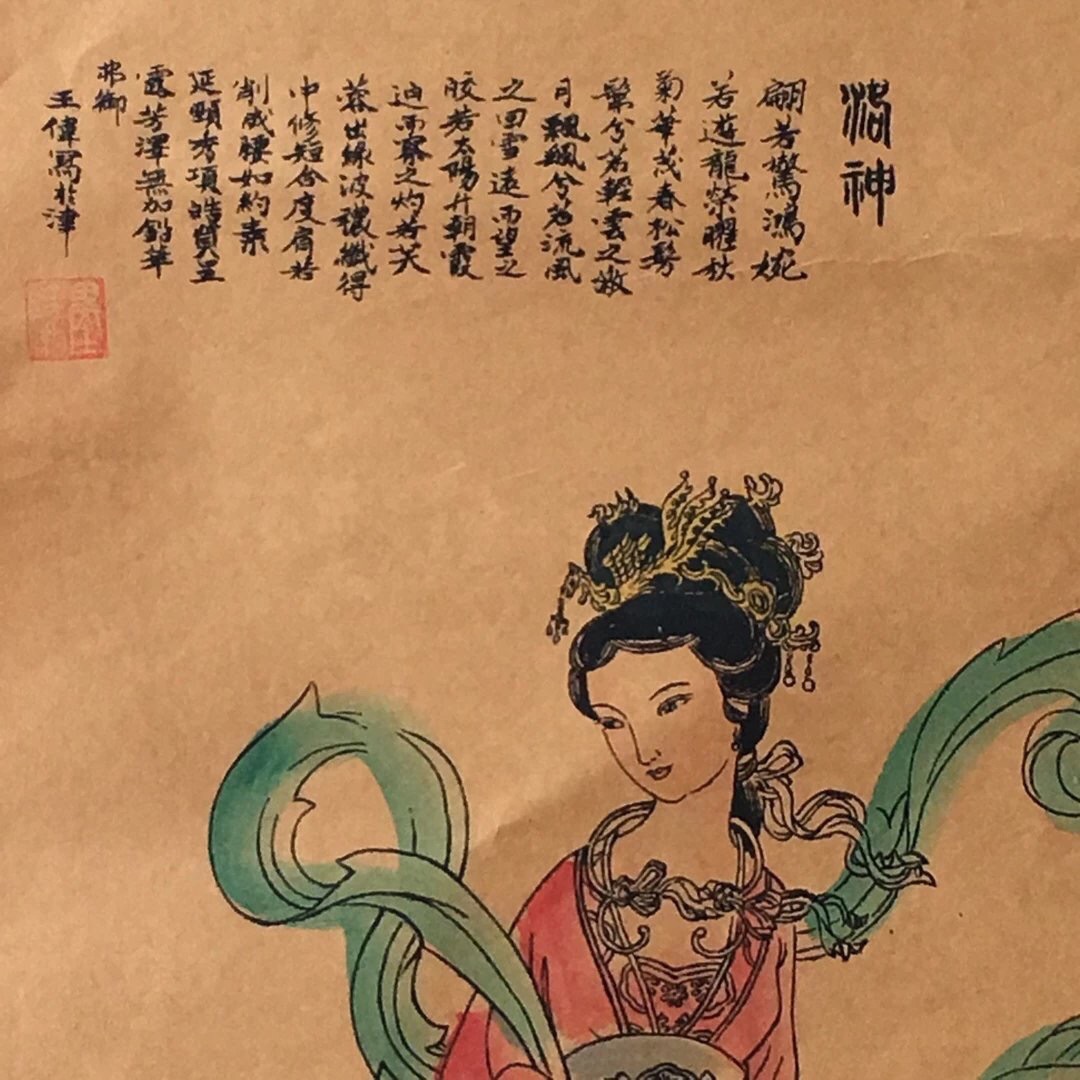 洛神
翩若驚鴻婉
若遊龍榮曜秋
菊華茂春松髣
髴兮若輕雲之蔽
月飄颻兮若流風
之回雪遠而望之
皎若太陽升朝霞
迫而察之灼若芙
蓉出綠波穠纖得
中修短合度肩若
削成腰如約素
延頸秀項皓質呈
露芳澤無加鉛華
弗御
王偉寫於津